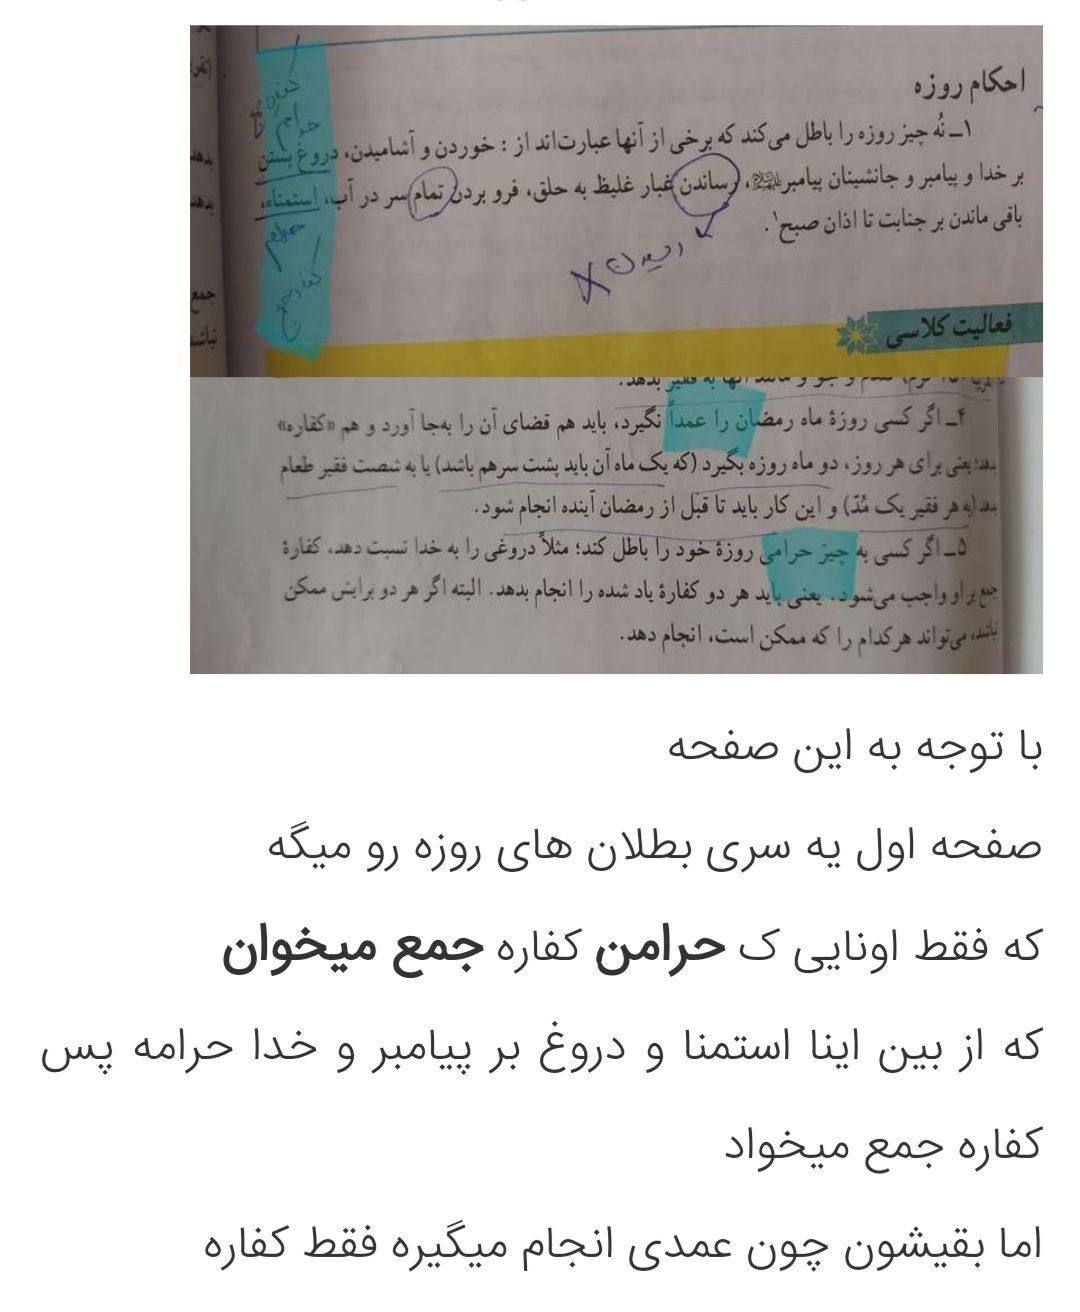 احکام روزه
۱ــ نُه چیز روزه را باطل می‌کند که برخی از آنها عبارت‌اند از : خوردن و آشامیدن، دروغ بستن
بر خدا و پیامبر و جانشینان پیامبر، رساندن غبار غلیظ به حلق، فرو بردن تمام سر در آب، استمناء،
باقی ماندن بر جنابت تا اذان صبح۱.
رسیدن
حرام
کفاره جمع
فعالیت کلاسی
گندم و جو و مانند آنها به فقیر بدهد.
۴ــ اگر کسی روزهٔ ماه رمضان را عمداً نگیرد، باید هم قضای آن را به‌جا آورد و هم «کفاره»
بدهد؛ یعنی برای هر روز، دو ماه روزه بگیرد (که یک ماه آن باید پشت سرهم باشد) یا به شصت فقیر طعام
بدهد (به هر فقیر یک مُدّ) و این کار باید تا قبل از رمضان آینده انجام شود.
۵ــ اگر کسی به چیز حرامی روزهٔ خود را باطل کند؛ مثلاً دروغی را به خدا نسبت دهد، کفارهٔ
جمع بر او واجب می‌شود. یعنی باید هر دو کفارهٔ یاد شده را انجام بدهد. البته اگر هر دو برایش ممکن
نباشد، می‌تواند هرکدام را که ممکن است، انجام دهد.
با توجه به این صفحه
صفحه اول یه سری بطلان های روزه رو میگه
که فقط اونایی ک حرامن کفاره جمع میخوان
که از بین اینا استمنا و دروغ بر پیامبر و خدا حرامه پس
کفاره جمع میخواد
اما بقیشون چون عمدی انجام میگیره فقط کفاره